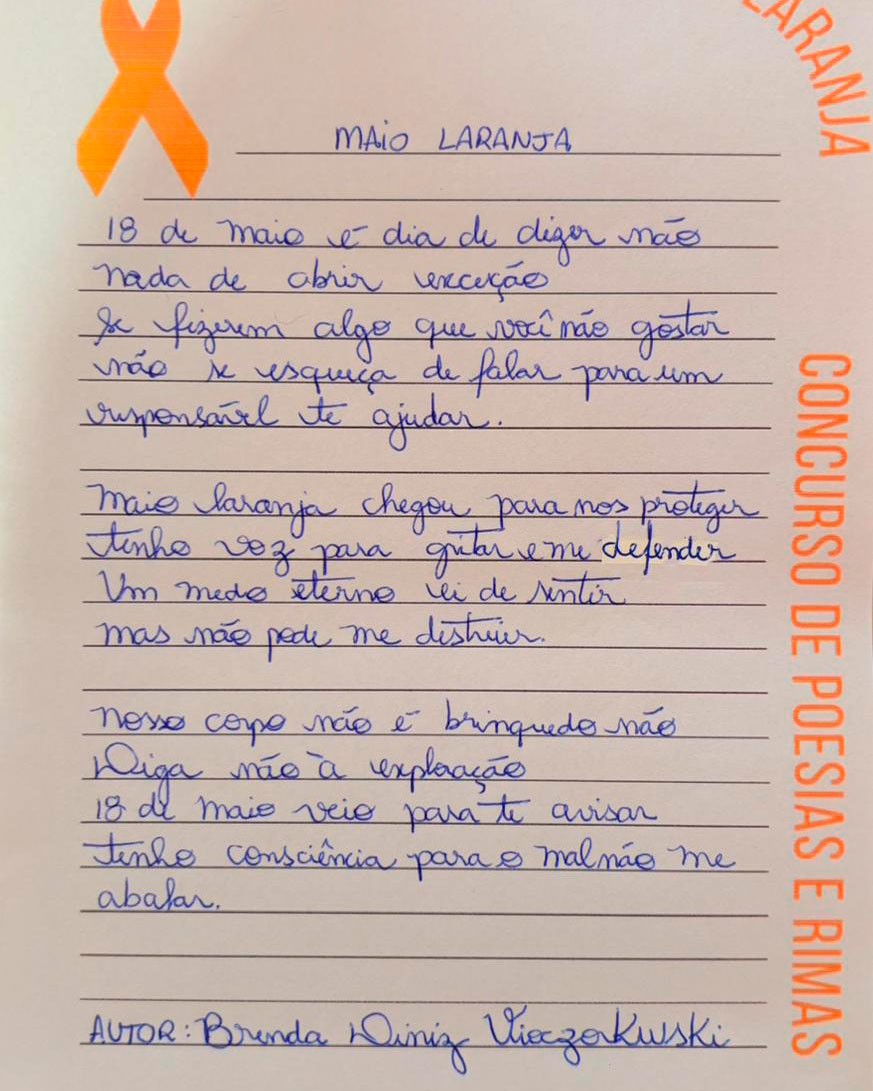 LARANJA
MAIO LARANJA
18 de maio é dia de dizer não
nada de abrir exceção
Se fizerem algo que você não gostar
não se esqueça de falar para um
responsável te ajudar.
maio laranja chegou para nos proteger
tenho voz para gritar e me defender
Um medo eterno vei de sentir
mas não pode me destruir.
nosso corpo não é brinquedo não
Diga não à exploração
18 de maio veio para te avisar
tenho consciência para o mal não me
abalar.
AUTOR: Brenda Diniz Vieczorkwski
CONCURSO DE POESIAS E RIMAS